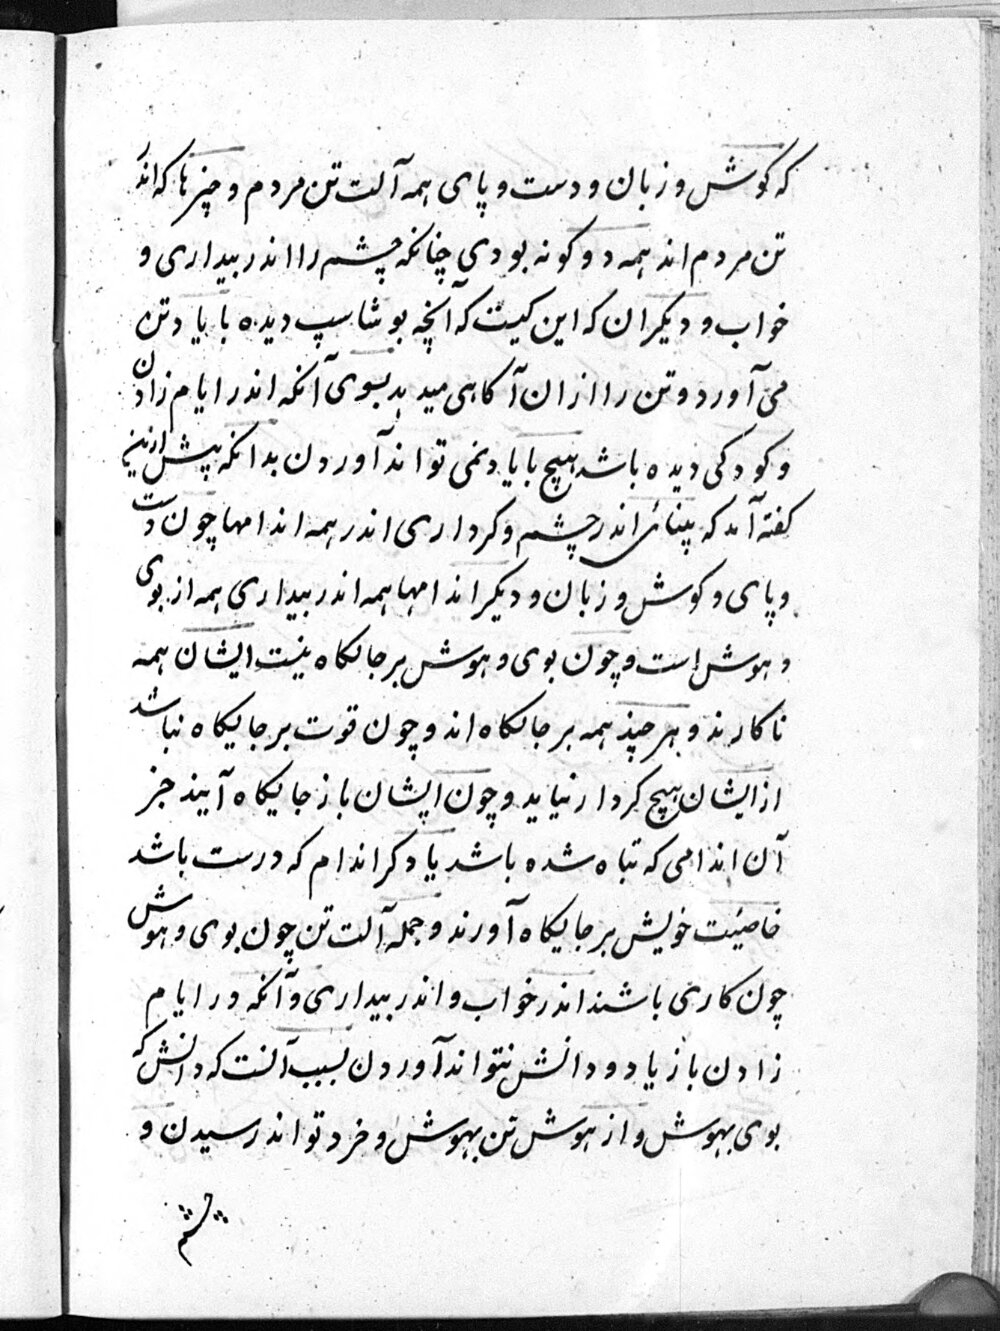 که گوش و زبان و دست و پای همه آلت تن مردم و چیزها که اند
تن مردم اند همه دو کونه بودی چنانکه چشم را اندر بیداری و
خواب و دیکران که این کیست که آنچه بوشاسپ دیده با یاد تن
می آورد و تن را از ان آکاهی میدهد بسوی آنکه اندر ایام زادن
و کودکی دیده باشد هیچ با یاد نمی تواند آوردن بدانکه پیش ازین
کفته آمد که بینائی اندر چشم و کرداری اندر همه اندامها چون دست
و پای و کوش و زبان و دیکر اندامها همه اندر بیداری همه از بوی
و هوش است و چون بوی و هوش بر جایکاه نیست ایشان همه
ناکارند و هرچند همه بر جایکاه اند و چون قوت بر جایکاه نباشد
از ایشان هیچ کردار نیاید و چون ایشان باز جایکاه آیند جز
آن اندامی که تباه شده باشد یا دکر اندام که درست باشد
خاصیت خویش بر جایکاه آورند و جمله آلت تن چون بوی و هوش
چون کاری باشند اندر خواب و اندر بیداری و آنکه در ایام
زادن باز یاد و دانش نتواند آوردن بسبب آنست که دانش که
بوی بهوش و از هوش تن بهوش و خرد تواند رسیدن و